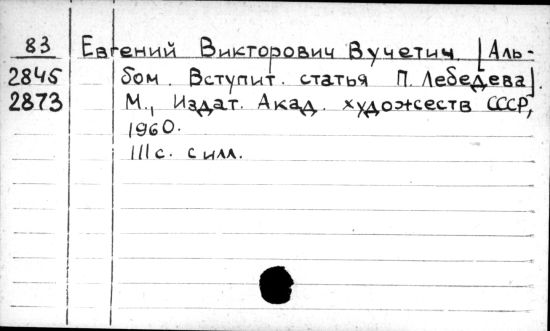 83 Евгений Викторович Вучетич [Аль-
2845 бом. Вступит. статья П. Лебедева]
2873 М., Издат. Акад. художеств СССР,
1960.
111с. с илл.